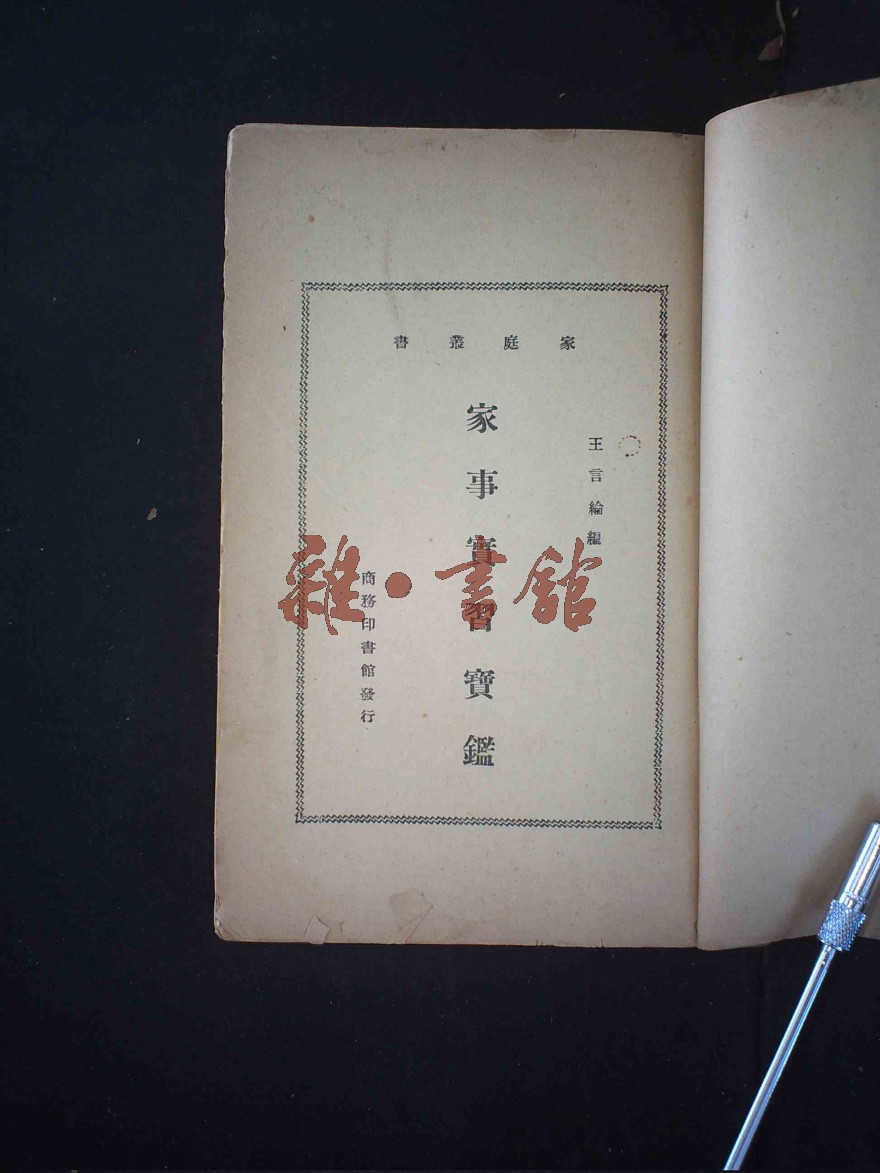 家庭叢書
王言綸編
家事實習寶鑑
商務印書館發行
雜·書館